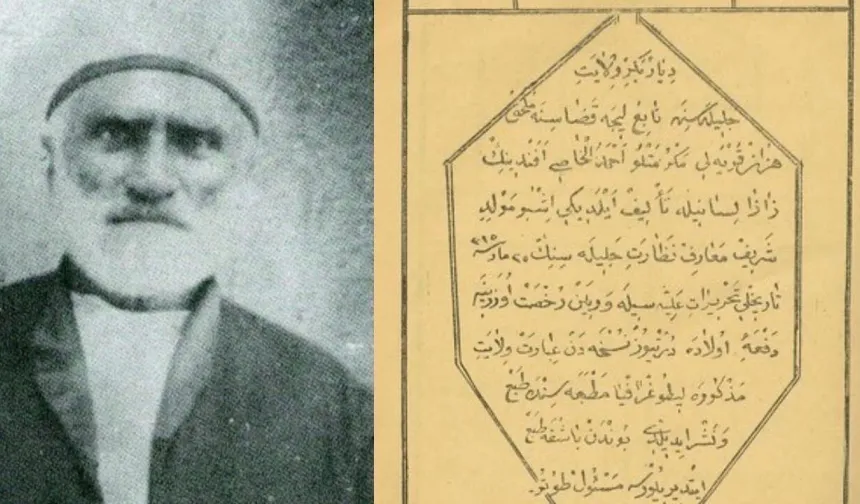 دیاربکر ولایت
جلیله‌سنه تابع لیجه قضاسنه ملحق
هزان قریه‌لی مکرمتلو أحمد الخاصی أفندینك
زازا لسانیله تألیف ایلدیکی اشبو مولد
شریف معارف نظارت جلیله سنك ٢٠ مارت ٣١٥
تاریخلی تحریرات علیه سیله ویریلن رخصت اوزرینه
دفعهٔ اولاده درتیوز نسخه دن عبارت ولایت
مذکوره لیطوغرافیا مطبعه سنده طبع
ونشر ایدیلدی بوندن باشقه طبع
ایتدیریلورسه مسئول طوتلور.